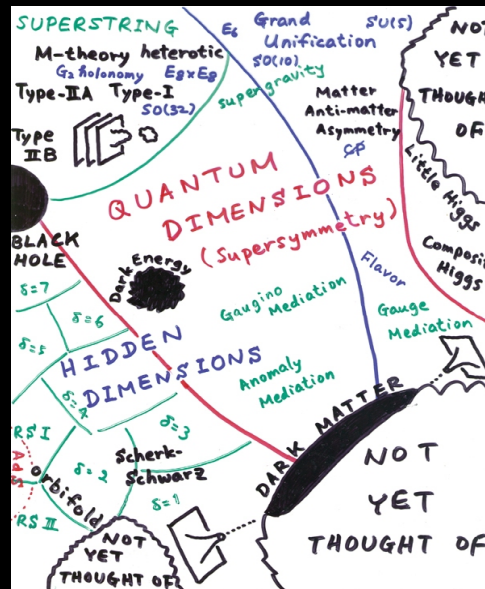 SUPERSTRING
M-theory heterotic
G₂ holonomy E8×E8
Type-IIA Type-I
SO(32)
Type
IIB
E6 Grand
Unification
SU(5)
SO(10)
supergravity
Matter
Anti-matter
Asymmetry
CP
NOT
YET
THOUGHT
OF
Little Higgs
Composi
Higgs
QUANTUM
DIMENSIONS
(Supersymmetry)
BLACK
HOLE
Dark Energy
Flavor
Gaugino
Mediation
Gauge
Mediation
Anomaly
Mediation
δ=7
δ=6
δ=5
HIDDEN
DIMENSIONS
δ=4
δ=3
RS I
AdS
orbifold
δ=2
Scherk-
Schwarz
δ=1
RS II
DARK MATTER
NOT
YET
THOUGHT OF
NOT
YET
THOUGHT OF